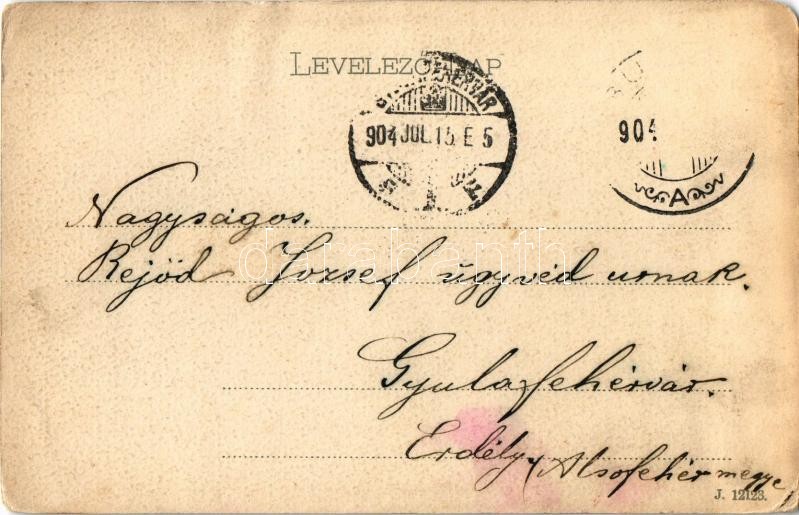 LEVELEZŐ-LAP
FEHÉRVÁR
904 JUL. 15. E 5
904
A
Nagyságos.
Rejöd József ügyvéd urnak.
darabanth
Gyulafehérvár.
Erdély. (Alsofehér megye
J. 12123.